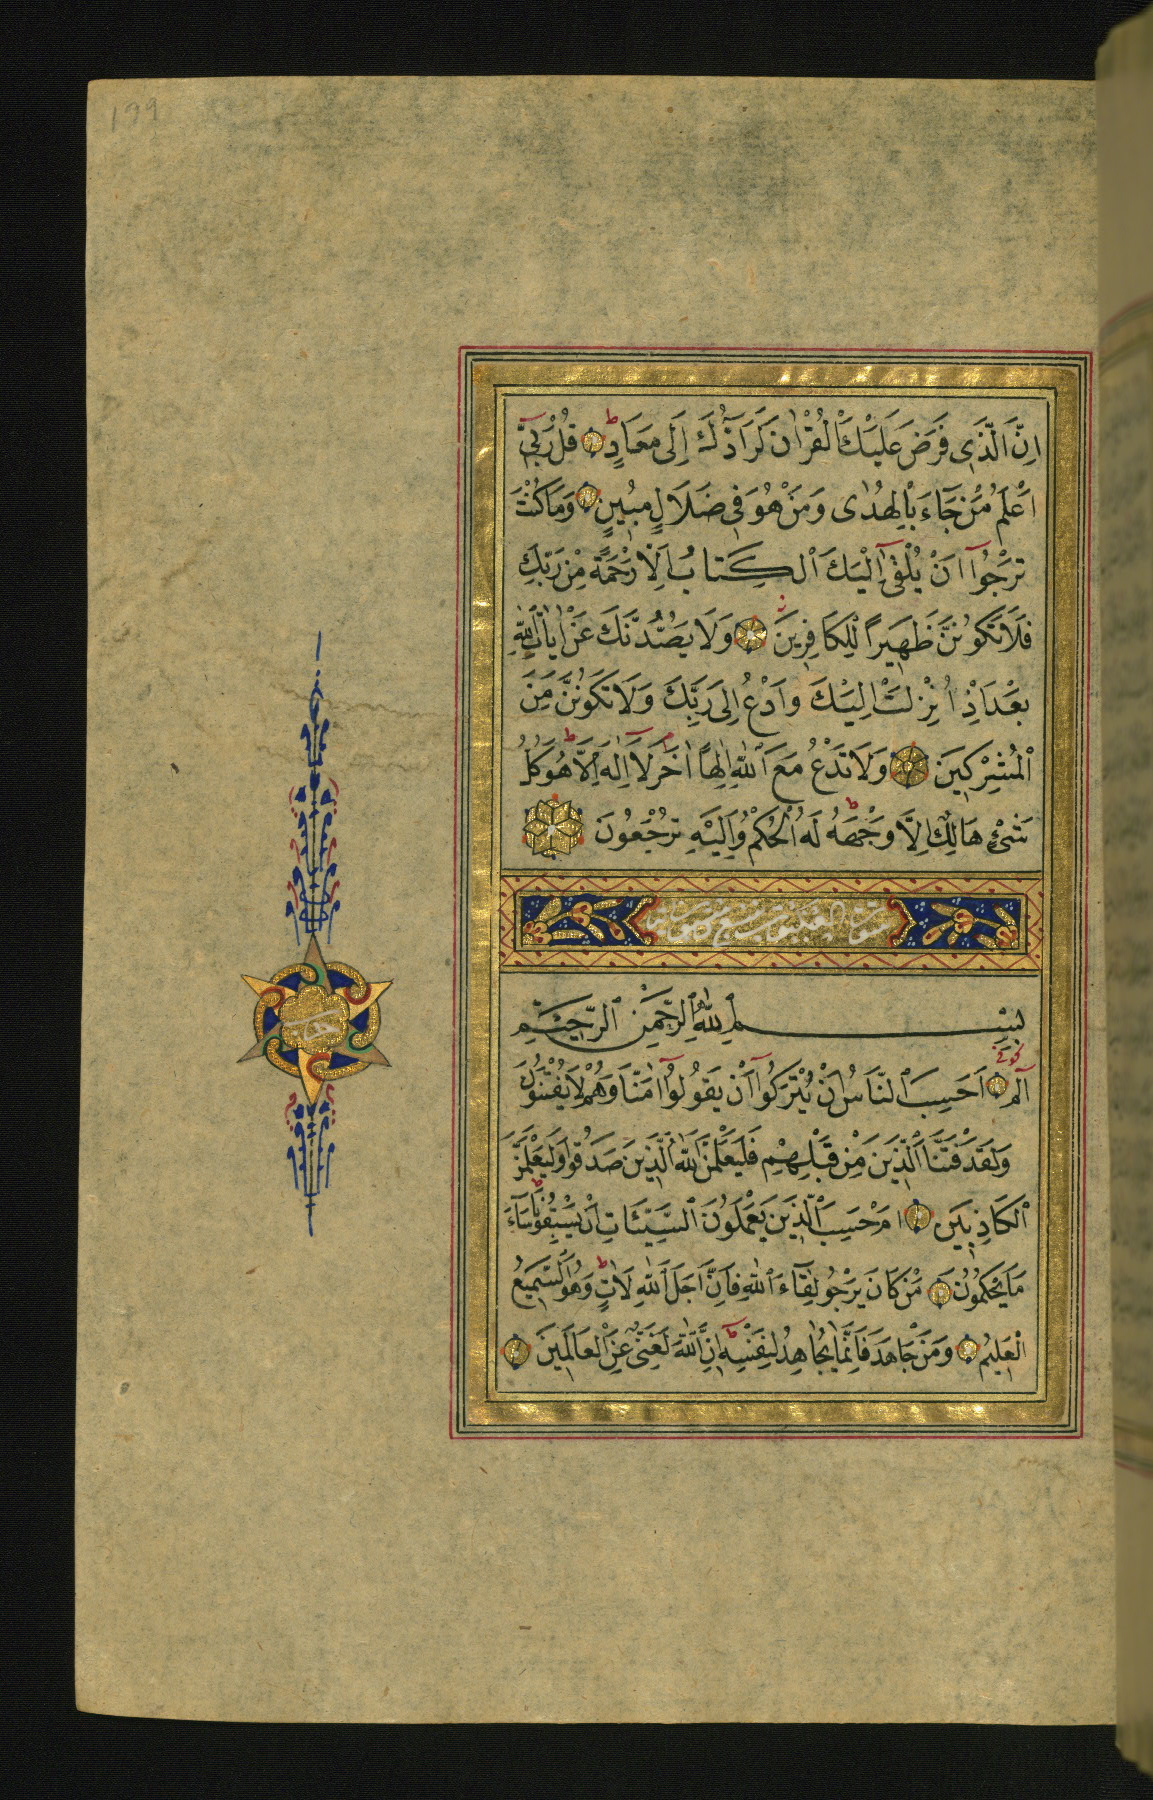 ١٩٩
اِنَّ الَّذٖى فَرَضَ عَلَيْكَ الْقُرْاٰنَ لَرَٓادُّكَ اِلٰى مَعَادٍ ط قُلْ رَبّٖٓى
اَعْلَمُ مَنْ جَٓاءَ بِالْهُدٰى وَمَنْ هُوَ فٖى ضَلَالٍ مُبٖينٍ وَمَا كُنْتَ
تَرْجُٓوا اَنْ يُلْقٰٓى اِلَيْكَ الْكِتَابُ اِلَّا رَحْمَةً مِنْ رَبِّكَ
فَلَا تَكُونَنَّ ظَهٖيرًا لِلْكَافِرٖينَ وَلَا يَصُدُّنَّكَ عَنْ اٰيَاتِ اللّٰهِ
بَعْدَ اِذْ اُنْزِلَتْ اِلَيْكَ وَادْعُ اِلٰى رَبِّكَ وَلَا تَكُونَنَّ مِنَ
الْمُشْرِكٖينَ وَلَا تَدْعُ مَعَ اللّٰهِ اِلٰهًا اٰخَرَ م لَٓا اِلٰهَ اِلَّا هُوَ ط كُلُّ
شَىْءٍ هَالِكٌ اِلَّا وَجْهَهُ ط لَهُ الْحُكْمُ وَاِلَيْهِ تُرْجَعُونَ
بِسْمِ اللّٰهِ الرَّحْمٰنِ الرَّحٖيمِ
كوفى
الٓمٓ اَحَسِبَ النَّاسُ اَنْ يُتْرَكُٓوا اَنْ يَقُولُٓوا اٰمَنَّا وَهُمْ لَا يُفْتَنُونَ
وَلَقَدْ فَتَنَّا الَّذٖينَ مِنْ قَبْلِهِمْ فَلَيَعْلَمَنَّ اللّٰهُ الَّذٖينَ صَدَقُوا وَلَيَعْلَمَنَّ
الْكَاذِبٖينَ اَمْ حَسِبَ الَّذٖينَ يَعْمَلُونَ السَّيِّئَاتِ اَنْ يَسْبِقُونَا ط سَٓاءَ
مَا يَحْكُمُونَ مَنْ كَانَ يَرْجُو لِقَٓاءَ اللّٰهِ فَاِنَّ اَجَلَ اللّٰهِ لَاٰتٍ ط وَهُوَ السَّمٖيعُ
الْعَلٖيمُ وَمَنْ جَاهَدَ فَاِنَّمَا يُجَاهِدُ لِنَفْسِهٖ ط اِنَّ اللّٰهَ لَغَنِىٌّ عَنِ الْعَالَمٖينَ